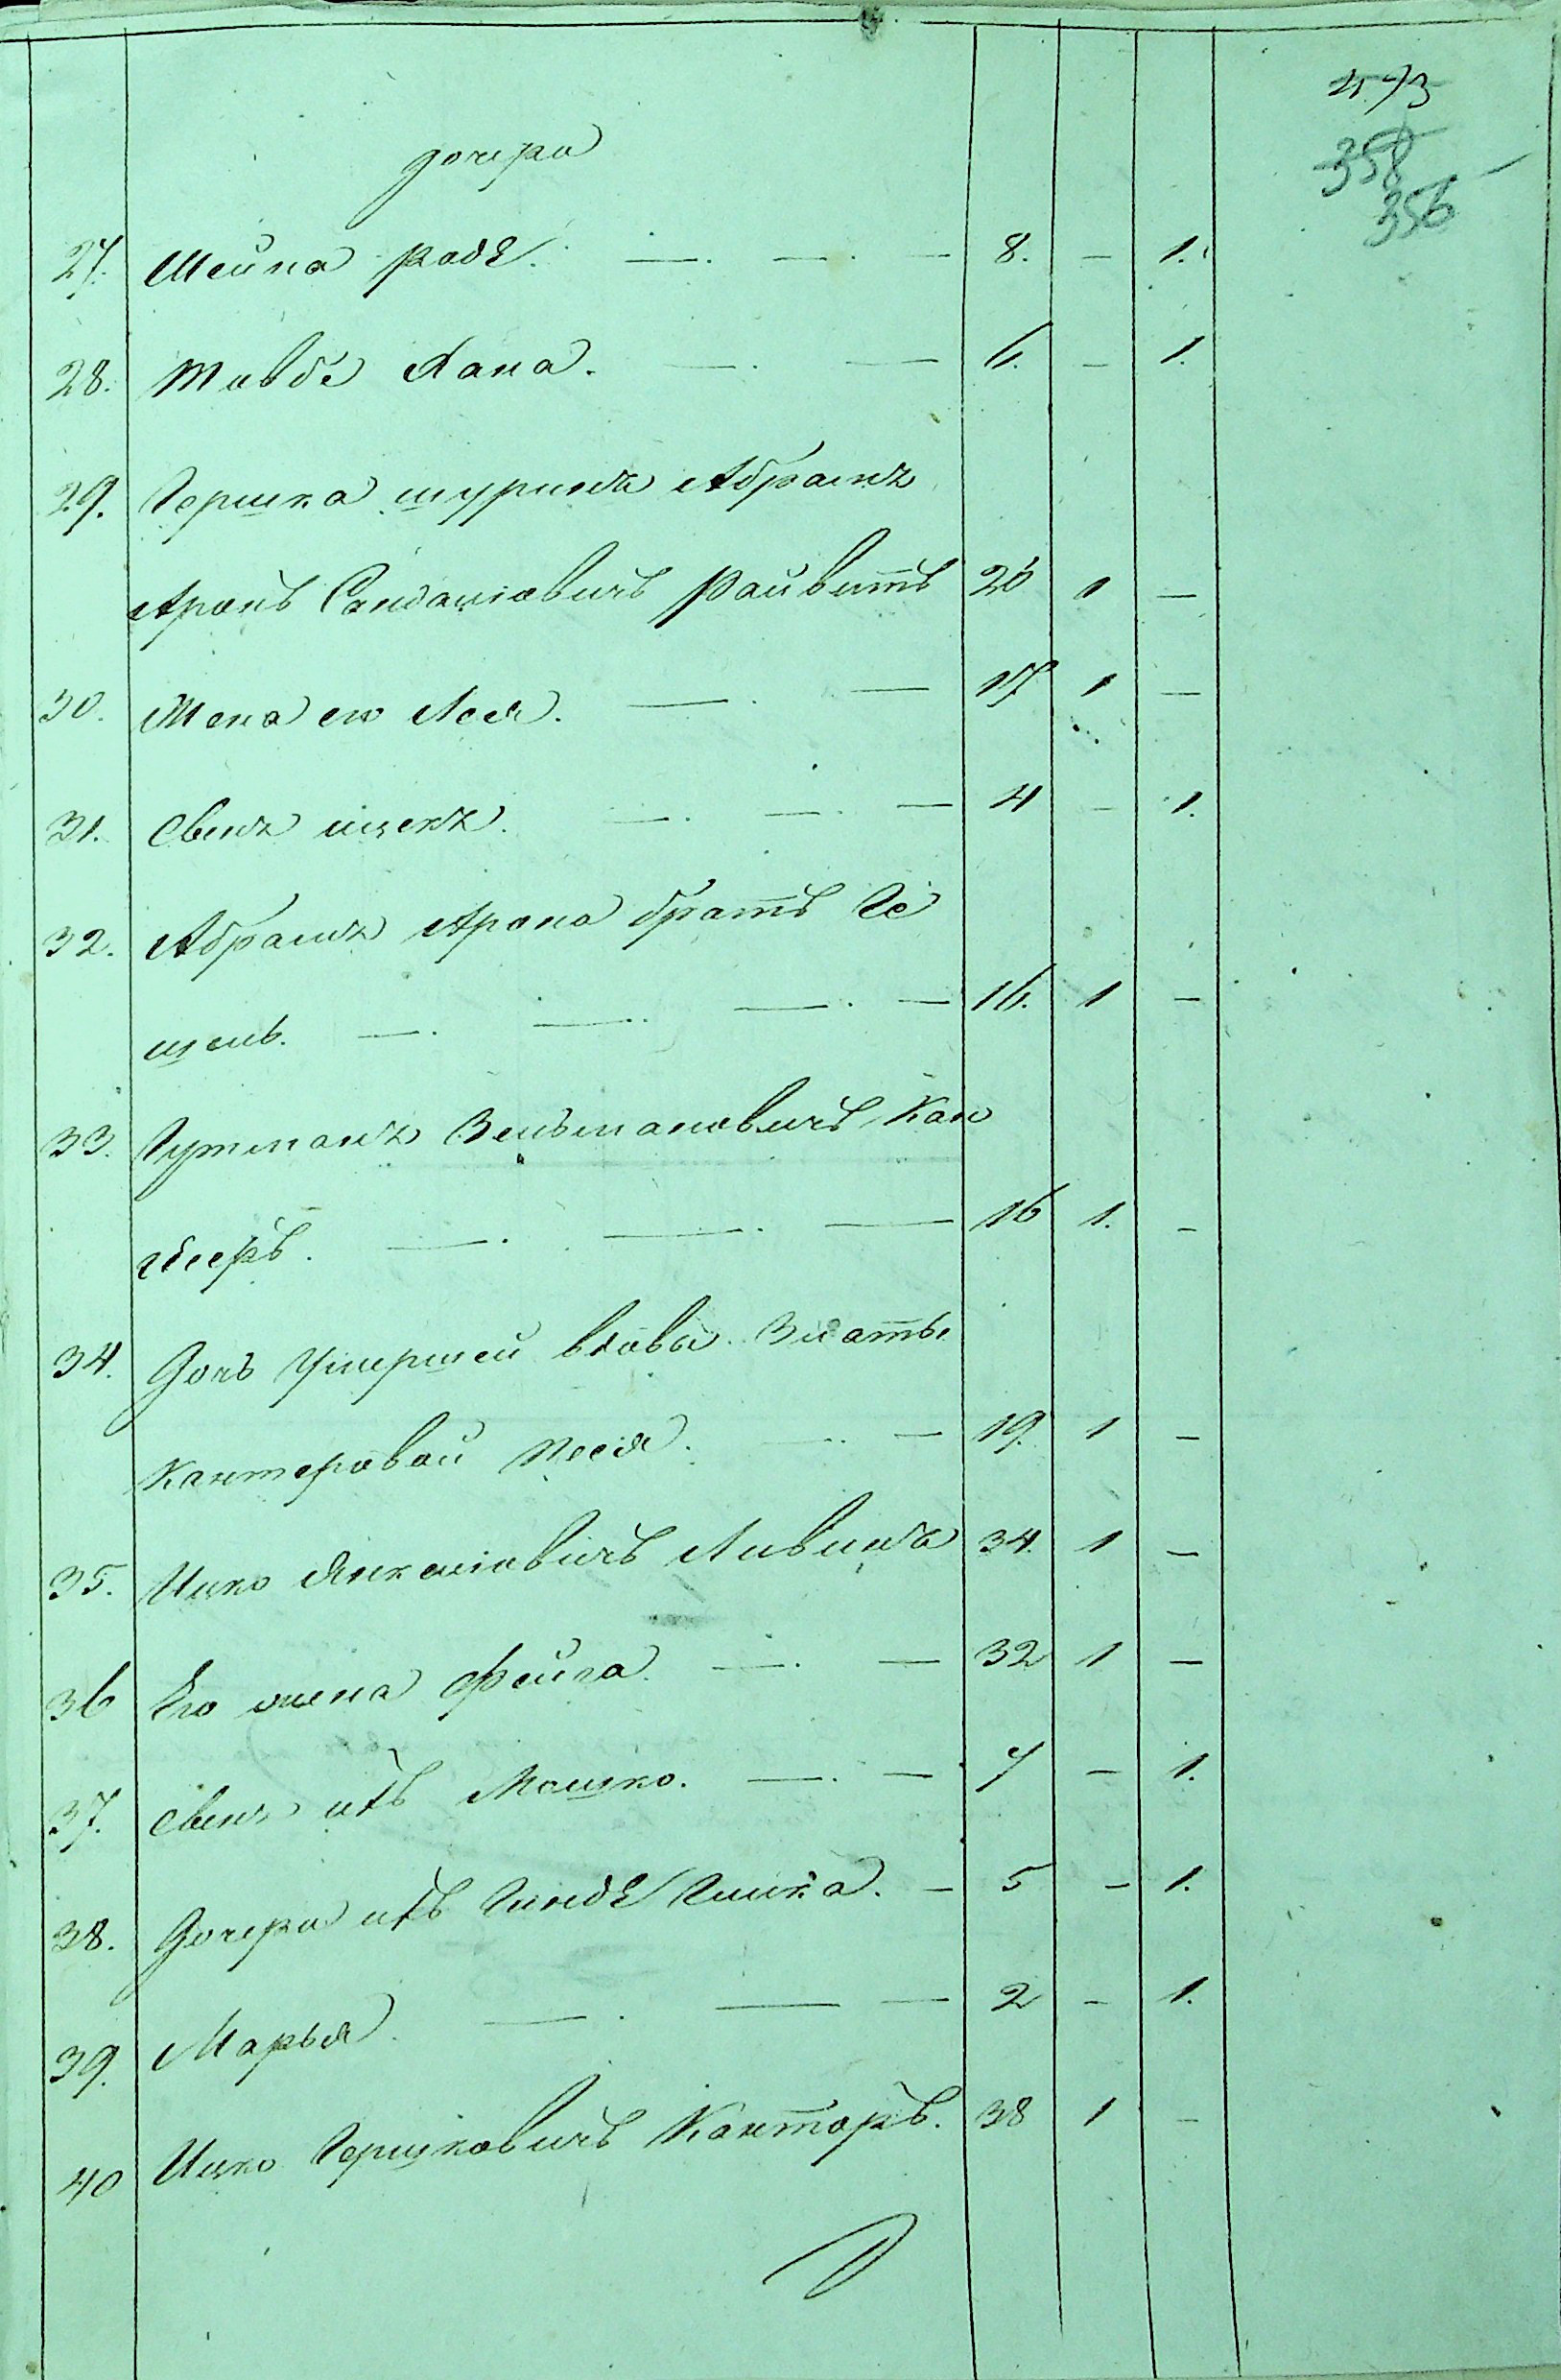 273
358
356
дочери
27. Шейна Родя. 8. — 1.
28. Товбе Хана. 6. — 1.
29. Гершка шуринъ Абрамъ
Аронъ Сандаліовичъ Райвитъ 20 1 —
30. Жена его Лея. 17 1 —
31. Сынъ ицекъ. 4 — 1.
32. Абрамъ Арона братъ Ге
шель. 16. 1 —
33. Гутманъ Зельмановичъ Кан
торъ. 16 1. —
34. Дочь умершей вдовы Златы
Канторовой Песя. 19. 1 —
35. Ицко Янкеліовичъ Ливинъ 34. 1 —
36 Его жена Фейга 32 1 —
37. Сынъ ихъ Мошко. 7 — 1.
38. Дочери ихъ Гинде Гитка. 5 — 1.
39. Марья. 2 — 1.
40 Ицко Гершковичъ Канторъ. 38 1 —